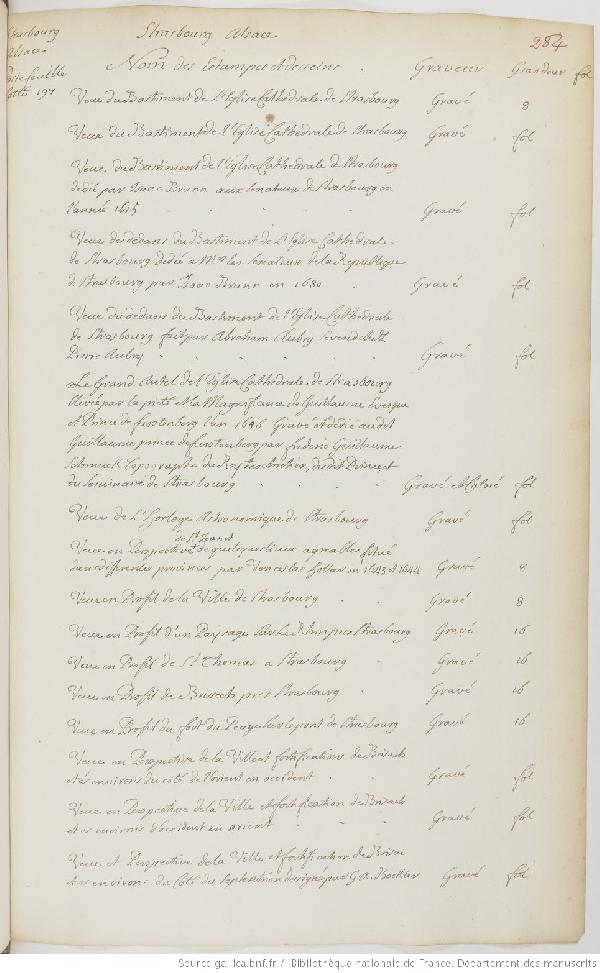 Strasbourg
Alsace
Strasbourg Alsace
284
Portefeuille
Cotté 197
Nom des Estampes et desseins . Graveur Grandeur fol
Veue du Bastiment de l'Eglise Cathedrale de Strasbourg Gravé 8
Veue du Bastiment de l'Eglise Cathedrale de Strasbourg Gravé fol
Veue du Bastiment de l'Eglise Cathedrale de Strasbourg
dedié par Isaac Brunn aux senateurs de Strasbourg en
l'année 1615 Gravé fol
Veue des dedans du Bastiment de l'Eglise Cathedrale
de Strasbourg dedié a Mrs les senateurs de la Republique
de Strasbourg par Isaac Brunn en 1630 Gravé fol
Veue du dedans du Bastiment de l'Eglise Cathedrale
de Strasbourg fait par Abraham Aubry
Pierre Aubry Gravé fol
Le Grand Autel de l'Eglise Cathedrale de Strasbourg
Elevée par la pieté et la Magnificence de Guillaume Evesque
et Prince de furstenberg l'an 1686 Gravé et dedié audit
Guillaume prince de furstenberg par frederic Guillaume
Schmuck Typographe du Roy dudit Prince et
du Seminaire de Strasbourg Gravé fol
Veue de l'Horloge Astronomique de Strasbourg Gravé fol
de St Jean et
Veue en Perspective de quelques lieux agreables situé
dans differentes provinces par Venceslas Hollar en 1643 et 1644 Gravé 8
Veue en Profil de la Ville de Strasbourg Gravé 8
Veue en Profil d'un Paysage sur le Rhin pres Strasbourg Gravé 16
Veue en Profil de St Thomas a Strasbourg Gravé 16
Veue en Profil de Brisach pres Strasbourg Gravé 16
Veue en Profil du fort du Peage sur le pont de Strasbourg Gravé 16
Veue en Perspective de la Ville et fortifications de Brisach
et es environs du coté de l'orient en occident Gravé fol
Veue en Perspective de la Ville et fortification de Brisach
et es environs d'occident en orient Gravé fol
Veue et Perspective de la Ville et fortification de Brisac
et es environs du Coté du septentrion designé par G. A. Boekler Gravé fol
Source gallica.bnf.fr / Bibliothèque nationale de France. Département des manuscrits